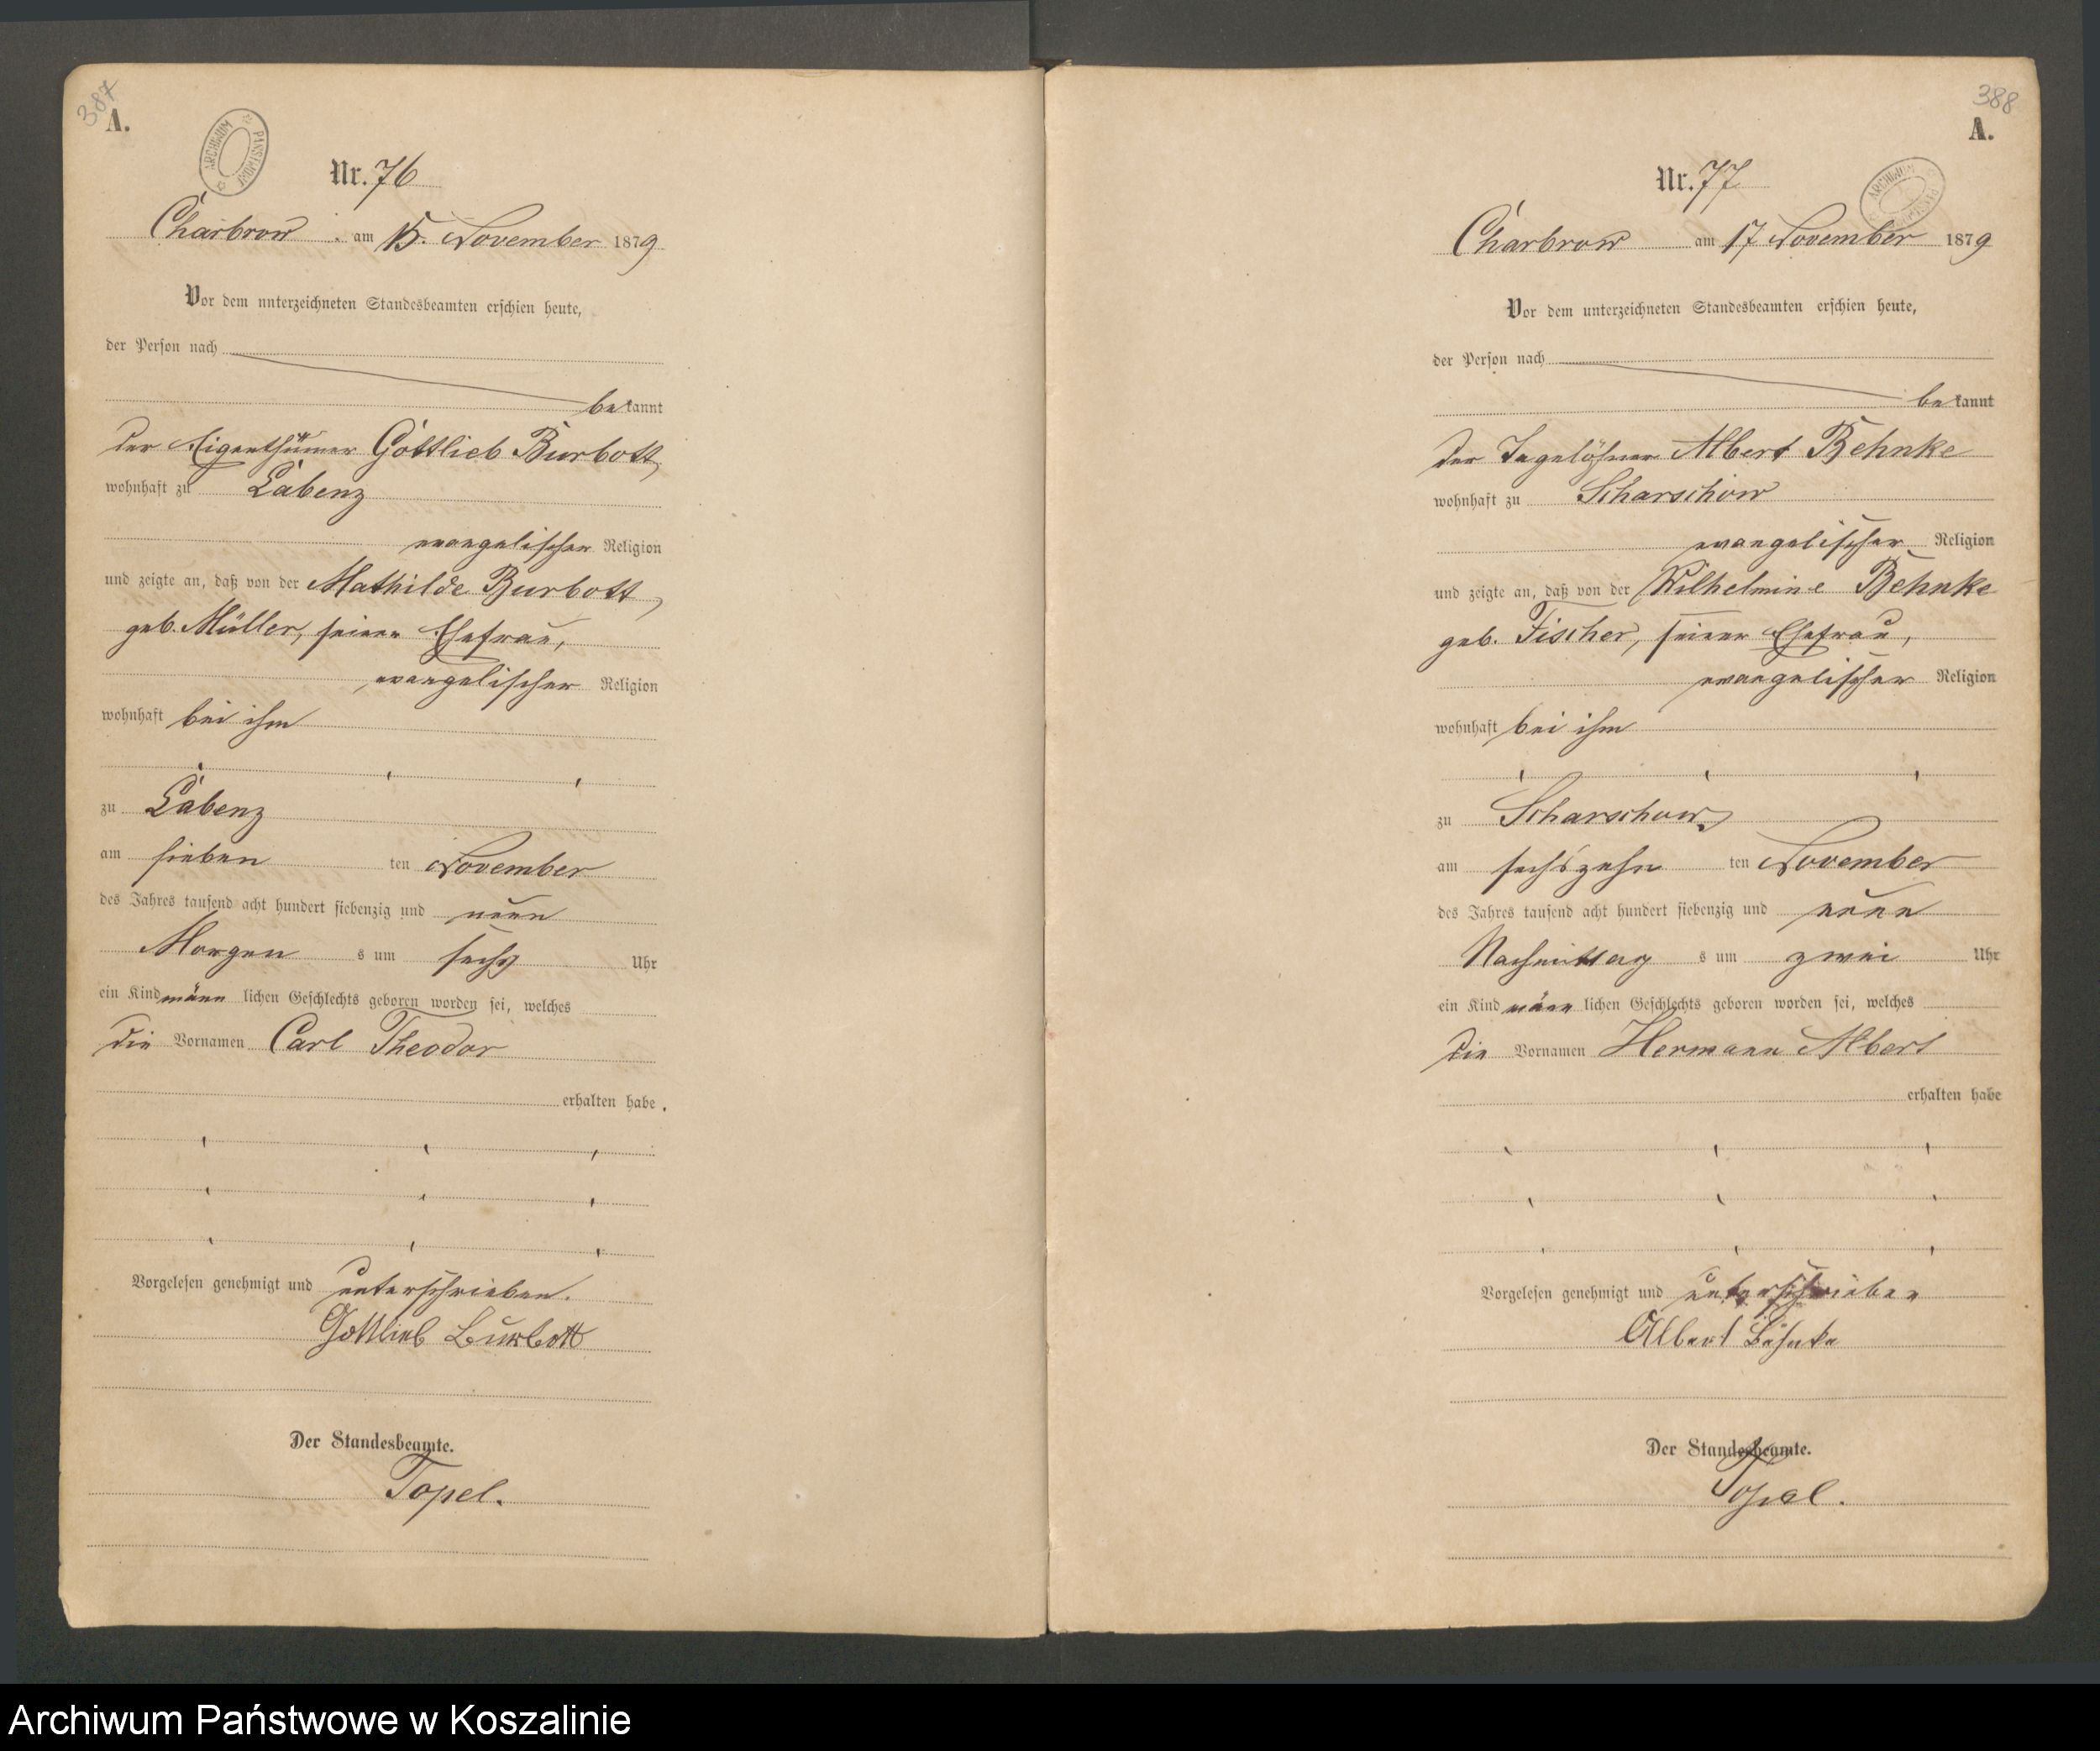 387
A.
ARCHIWUM PAŃSTWOWE
Nr. 76
Charbrow am 15. November 1879
Vor dem unterzeichneten Standesbeamten erschien heute,
der Person nach
bekannt
der Eigenthümer Gottlieb Burbott,
wohnhaft zu Labenz
evangelischer Religion
und zeigte an, daß von der Mathilde Burbott,
geb. Müller, seiner Ehefrau,
evangelischer Religion
wohnhaft bei ihm
zu Labenz
am sieben ten November
des Jahres tausend acht hundert siebenzig und neun
Morgen s um sechs Uhr
ein Kind männ lichen Geschlechts geboren worden sei, welches
die Vornamen Carl Theodor
erhalten habe.
Vorgelesen genehmigt und unterschrieben.
Gottlieb Burbott
Der Standesbeamte.
Topel.
388
A.
ARCHIWUM PAŃSTWOWE
Nr. 77
Charbrow am 17 November 1879
Vor dem unterzeichneten Standesbeamten erschien heute,
der Person nach
bekannt
der Tagelöhner Albert Behnke
wohnhaft zu Scharschow
evangelischer Religion
und zeigte an, daß von der Wilhelmine Behnke
geb. Fischer, seiner Ehefrau,
evangelischer Religion
wohnhaft bei ihm
zu Scharschow
am sechszehn ten November
des Jahres tausend acht hundert siebenzig und neun
Nachmittag s um zwei Uhr
ein Kind männ lichen Geschlechts geboren worden sei, welches
die Vornamen Hermann Albert
erhalten habe
Vorgelesen genehmigt und unterschrieben
Albert Behnke
Der Standesbeamte.
Topel.
Archiwum Państwowe w Koszalinie